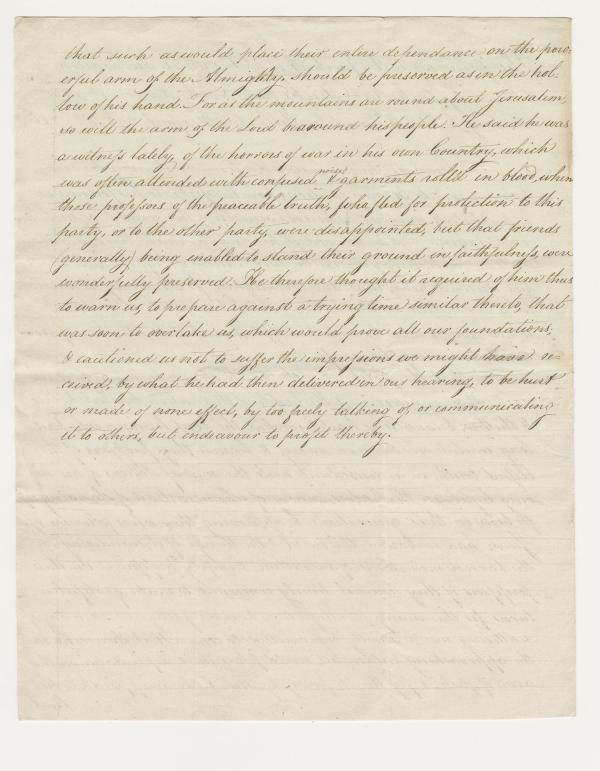 that such as would place their entire dependance on the pow-
erful arm of the Almighty, should be preserved as in the hol-
low of his hand. For as the mountains are round about Jerusalem,
so will the arm of the Lord be around his people. He said he was
a witness lately, of the horrors of war in his own Country, which
was often attended with confused noise, & garments roll'd in blood, when
those professors of the peaceable truth, who fled for protection to this
party, or to the other party, were disappointed, but that friends
(generally) being enabled to stand their ground in faithfulness, were
wonderfully preserved. He therefore thought it required of him thus
to warn us, to prepare against a trying time similar thereto, that
was soon to overtake us, which would prove all our foundations,
& cautioned us not to suffer the impressions we might have re-
ceived, by what he had then delivered in our hearing, to be hurt
or made of none effect, by too freely talking of, or communicating
it to others, but endeavour to profit thereby.